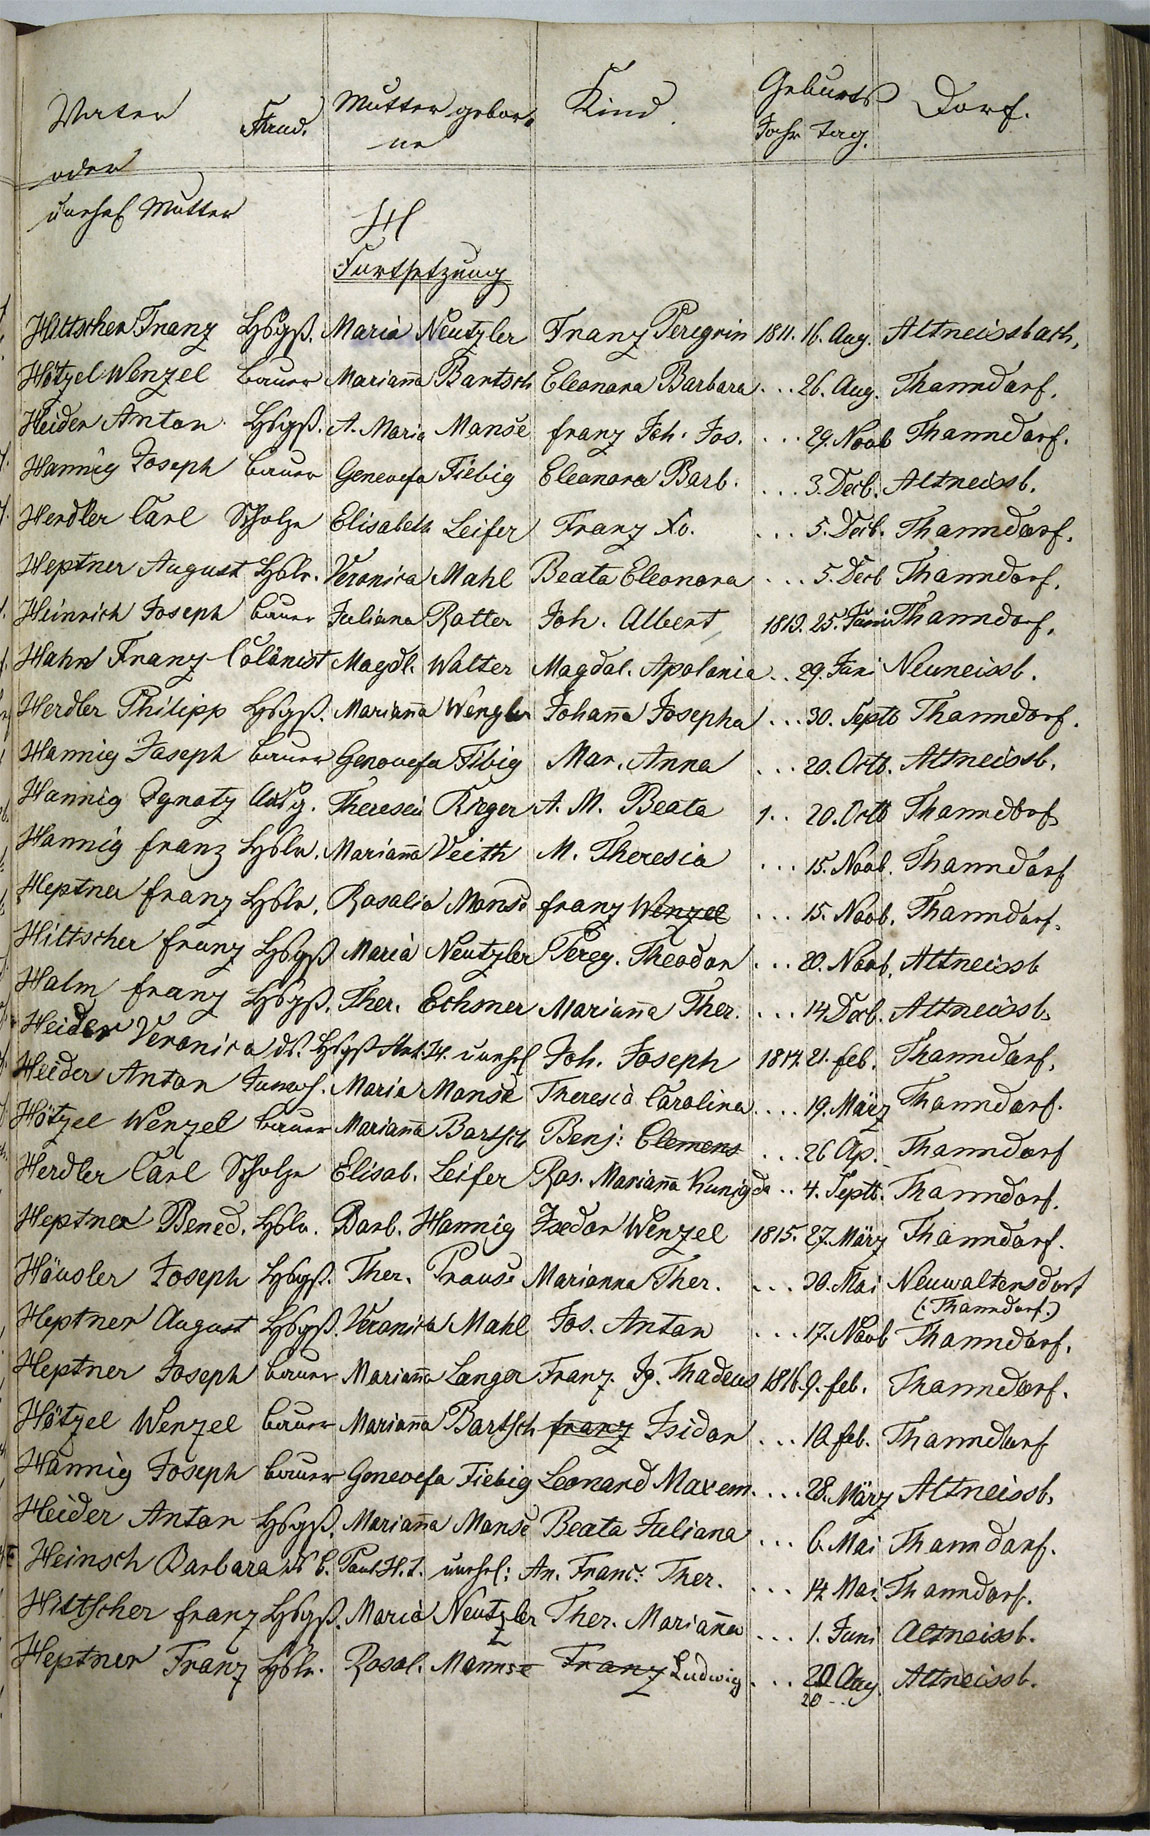 Vater Stand. Mutter gebor= Kind. Geburts Dorf.
ne Jahr Tag.
oder
unehel Mutter H
Fortsetzung
Hittscher Franz Hsgß. Maria Neutzler Franz Peregrin 1811. 16. Aug. Altneissbach.
Hötzel Wenzel bauer Mariana Bartsch Eleonora Barbara ... 26. Aug. Thanndorf.
Heider Anton Hsgß. A. Maria Manse franz Joh. Jos. ... 29. Novb Thanndorf.
Hannig Joseph bauer Genovefa Fiebig Eleonora Barb. ... 3. Decb. Altneissb.
Herdler Carl Scholze Elisabeth Leifer Franz Xv. ... 5. Decb. Thanndorf.
Heptner August Hslr. Veronica Mahl Beata Eleonora ... 5. Decb Thanndorf.
Heinrich Joseph bauer Juliana Rotter Joh. Albert 1813. 25. Juni Thanndorf.
Hahn Franz Colonist Magdl. Walter Magdal. Apolonia .. 29. Juni Neuneissb.
Herdler Philipp Hsgß. Mariana Wengler Johana Josepha ... 30. Septb Thanndorf.
Hannig Joseph bauer Genovefa Fibig Mar. Anna ... 20. Octb. Altneissb.
Hannig Ignatz Theresia Krieger A. M. Beata 20. Octb Thanndorf
Hannig franz Hslr. Mariana Veith M. Theresia ... 15. Novb. Thanndorf
Heptner franz Hslr. Rosalia Manse franz Wenzel ... 15. Novb. Thanndorf.
Hittscher franz Hsgß Maria Neutzler Pereg. Theodor ... 20. Novb. Altneissb
Halm franz Hsgß. Ther. Echsner Mariana Ther. ... 14 Decb. Altneissb.
Heider Veronica ds. Hsgß Ant. H. unehl Joh. Joseph 1814. 21. feb. Thanndorf.
Heider Anton Maria Manse Theresia Carolina ... 19. März Thanndorf.
Hötzel Wenzel bauer Mariana Bartsch Benj: Clemens ... 26 Ap. Thanndorf
Herdler Carl Scholze Elisab. Leifer Ros. Mariana Kunigda .. 4. Septb. Thanndorf.
Heptner Bened. Hslr. Barb. Hannig Isedor Wenzel 1815. 27. März Thanndorf.
Häusler Joseph Hsgß. Ther. Prause Marianna Ther. ... 30. Mai Neuwaltersdorf
(: Thanndorf:)
Heptner August Hsgß. Veronica Mahl Jos. Anton ... 17. Novb Thanndorf.
Heptner Joseph bauer Mariana Langer Franz Ig. Thadeus 1816. 9. feb. Thanndorf.
Hötzel Wenzel bauer Mariana Bartsch franz Isidor ... 10. feb. Thanndorf
Hannig Joseph bauer Genovefa Fiebig Leonard Maxem. ... 28. März Altneissb.
Heider Anton Hsgß. Mariana Manse Beata Juliana ... 6. Mai Thanndorf.
Heinsch Barbara ds b. Paul H. t. unehl: An. Franc. Ther. ... 14 Mai Thanndorf.
Hittscher franz Hsgß. Maria Neutzler Ther. Mariana ... 1. Juni Altneissb.
Heptner Franz Hslr. Rosal. Manse Franz Ludwig ... 20 Aug. Altneissb.
20